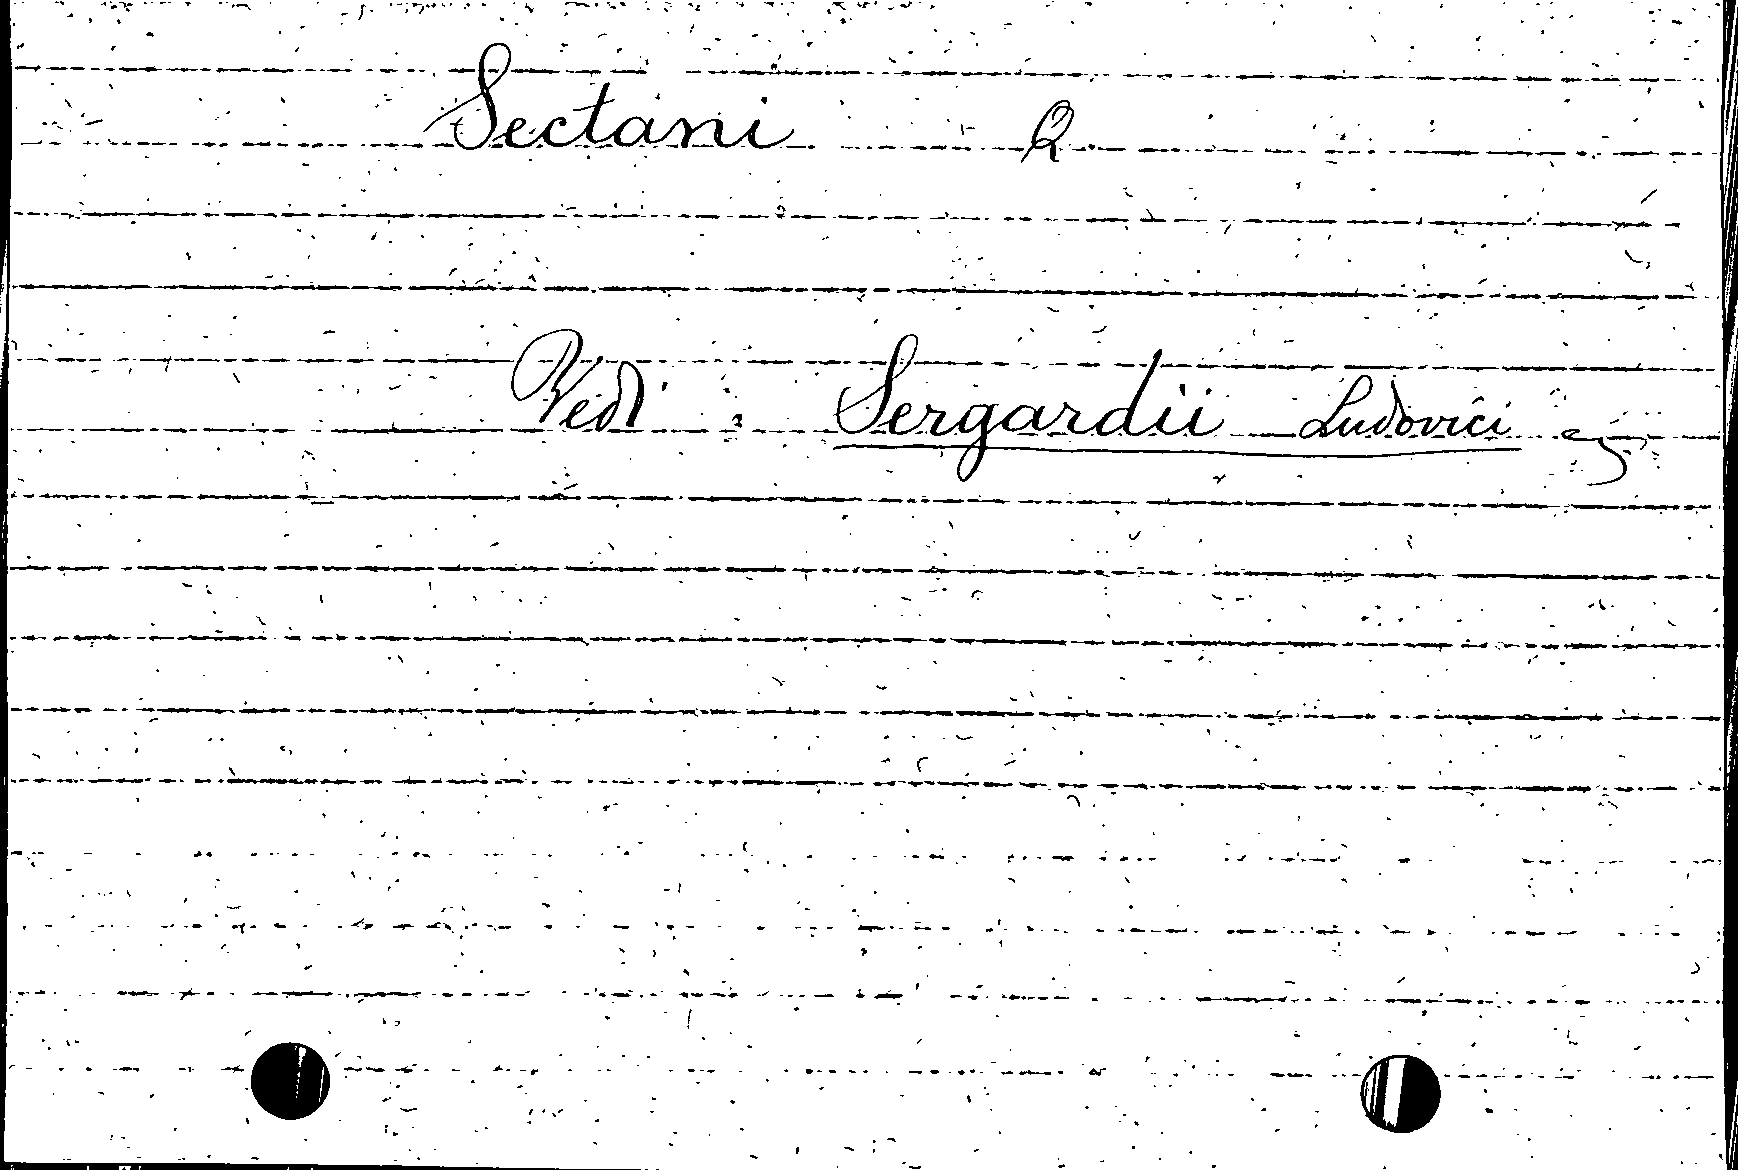 Sectani Q.
Vedi : Sergardii Ludovici